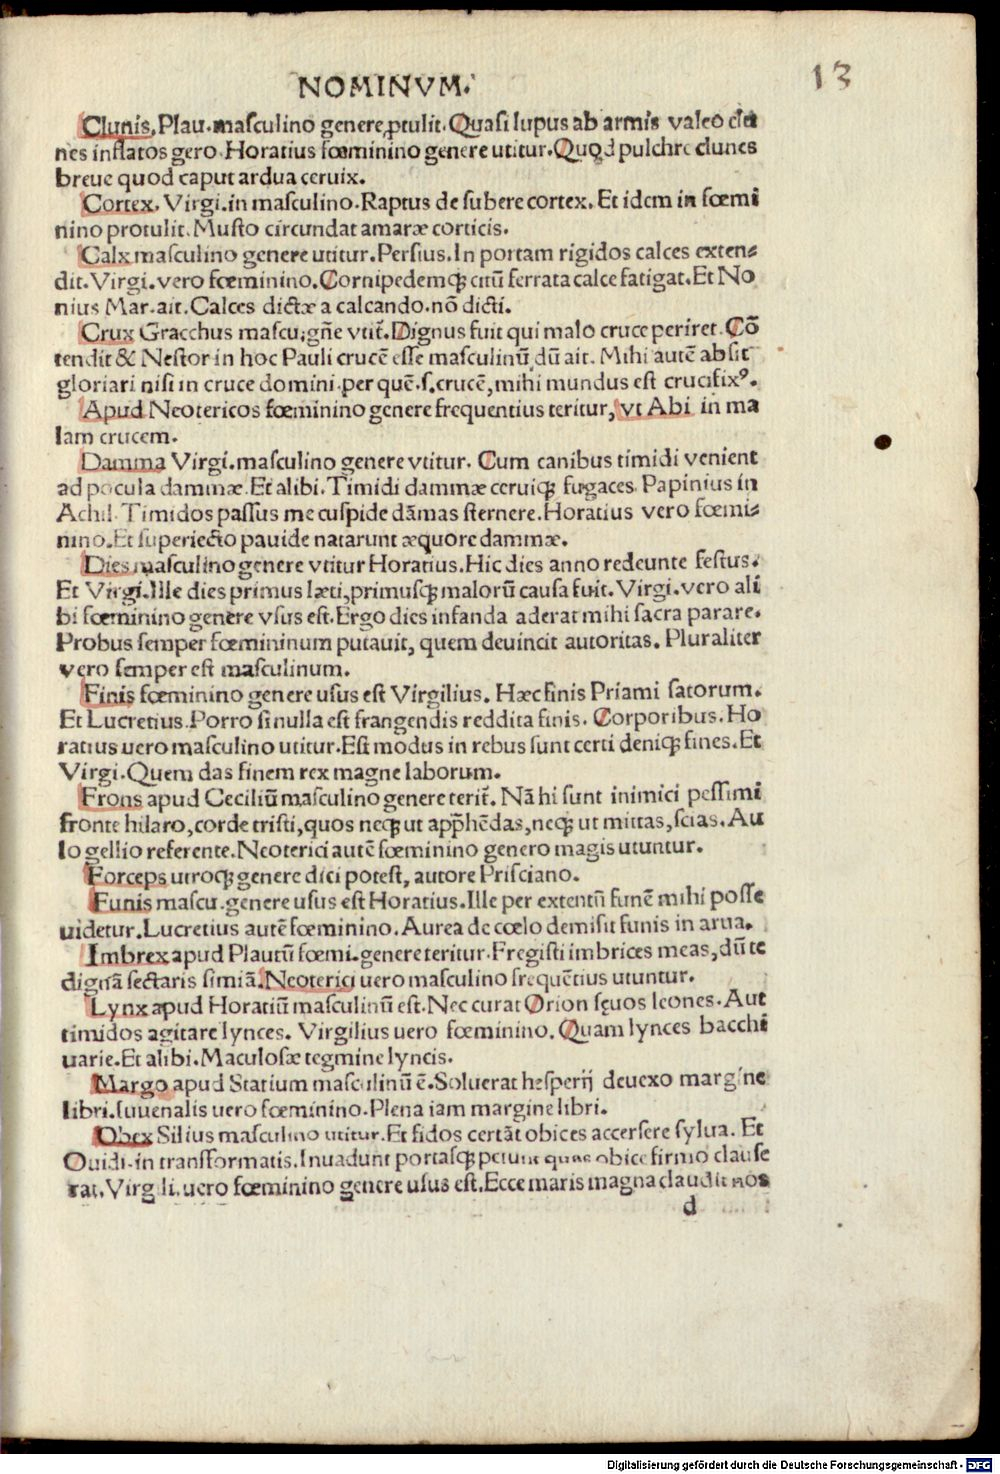 13
NOMINVM.
Clunis, Plau. masculino genere ꝓtulit. Quasi lupus ab armis valeo clu
nes inflatos gero. Horatius fœminino genere utitur. Quod pulchre clunes
breue quod caput ardua ceruix.
Cortex. Virgi. in masculino. Raptus de subere cortex. Et idem in fœmi
nino protulit. Musto circundat amaræ corticis.
Calx masculino genere utitur. Persius. In portam rigidos calces exten⸗
dit. Virgi. vero fœminino. Cornipedemqȝ citū ferrata calce fatigat. Et No
nius Mar. ait. Calces dictæ a calcando. nō dicti.
Crux Gracchus mascu; gñe vtit̄. Dignus fuit qui malo cruce periret. Cō
tendit & Nestor in hoc Pauli crucē esse masculinū, dū ait. Mihi autē absit
gloriari nisi in cruce domini. per quē. s. crucē, mihi mundus est crucifixꝰ.
Apud Neotericos fœminino genere frequentius teritur, vt Abi in ma
lam crucem.
Damma Virgi. masculino genere vtitur. Cum canibus timidi venient
ad pocula dammæ. Et alibi. Timidi dammæ ceruiqȝ fugaces. Papinius in
Achil. Timidos passus me cuspide dāmas sternere. Horatius vero fœmi⸗
nino. Et superiecto pauide natarunt æquore dammæ.
Dies masculino genere vtitur Horatius. Hic dies anno redeunte festus.
Et Virgi. Ille dies primus læti, primusqȝ malorū causa fuit. Virgi. vero ali
bi fœminino genere vsus est. Ergo dies infanda aderat mihi sacra parare.
Probus semper fœmininum putauit, quem deuincit autoritas. Pluraliter
vero semper est masculinum.
Finis fœminino genere usus est Virgilius. Hæc finis Priami fatorum.
Et Lucretius. Porro si nulla est frangendis reddita finis. Corporibus. Ho
ratius uero masculino utitur. Est modus in rebus sunt certi deniqȝ fines. Et
Virgi. Quem das finem rex magne laborum.
Frons apud Ceciliū masculino genere terit̄. Nā hi sunt inimici pessimi
fronte hilaro, corde tristi, quos neqȝ ut app̄hēdas, neqȝ ut mittas, scias. Au
lo gellio referente. Neoterici autē fœminino genero magis utuntur.
Forceps utroqȝ genere dici potest, autore Prisciano.
Funis mascu. genere usus est Horatius. Ille per extentū funē mihi posse
uidetur. Lucretius autē fœminino. Aurea de cœlo demisit funis in arua.
Imbrex apud Plautū fœmi. genere teritur. Fregisti imbrices meas, dū te
dignā sectaris simiā. Neoterici uero masculino frequētius utuntur.
Lynx apud Horatiū masculinū est. Nec curat Orion sęuos leones. Aut
timidos agitare lynces. Virgilius uero fœminino. Quam lynces bacchi
uarie. Et alibi. Maculosæ tegmine lyncis.
Margo apud Statium masculinū ē. Soluerat hesperij deuexo margine
libri. Iuuenalis uero fœminino. Plena iam margine libri.
Obex Silius masculino utitur. Et fidos certāt obices accersere sylua. Et
Ouidi. in transformatis. Inuadunt portasqȝ petunt quas obice firmo clause
rat. Virgili. uero fœminino genere usus est. Ecce maris magna claudit nos
d
Digitalisierung gefördert durch die Deutsche Forschungsgemeinschaft - DFG